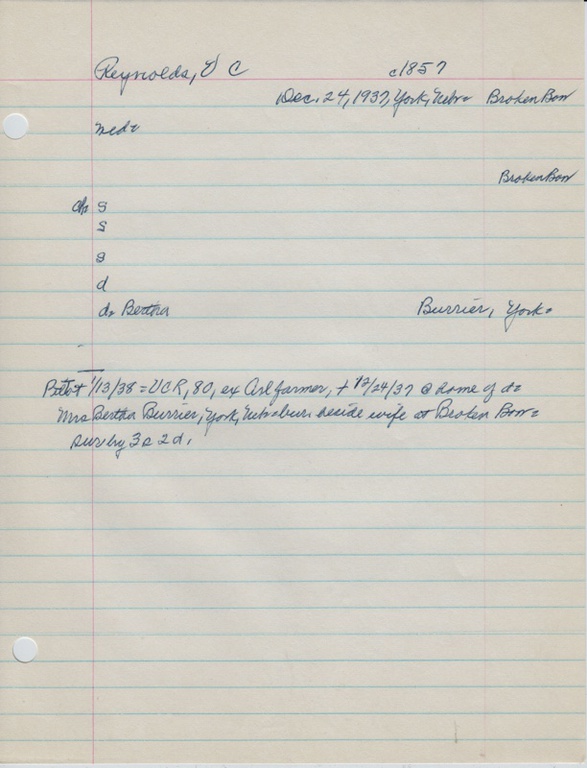 Reynolds, U C c1857
Dec. 24, 1937, York, Nebr= Broken Bow
Broken Bow
ch s
s
s
d
d, Bertha Burrier, York=
1/13/38 = UCR, 80, ex Arl farmer, + 12/24/37 @ home of d=
Mrs Bertha Burrier, York, Nebr bur beside wife at Broken Bow=
surv by 3s 2d,